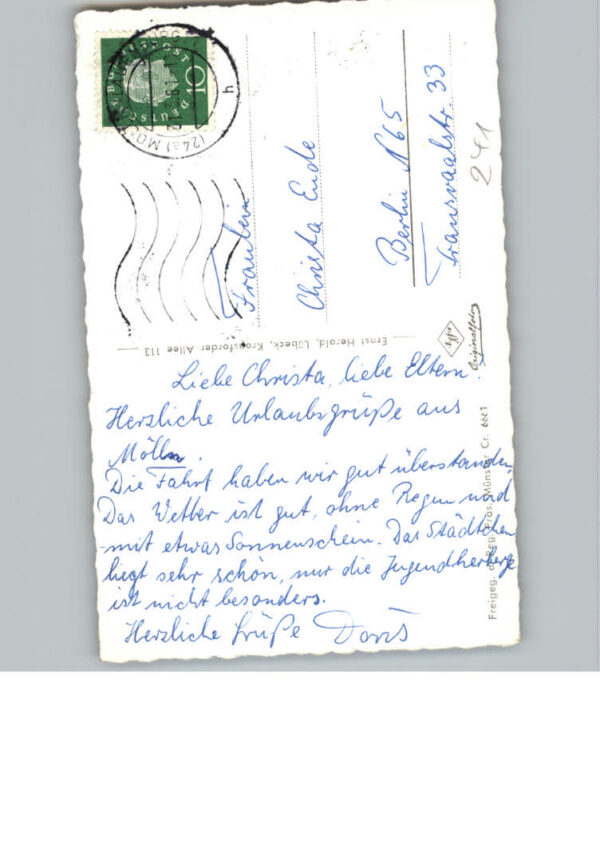 Liebe Christa, liebe Eltern.
Herzliche Urlaubsgrüße aus
Mölln.
Die Fahrt haben wir gut überstanden.
Das Wetter ist gut, ohne Regen und
mit etwas Sonnenschein. Das Städtchen
liegt sehr schön, nur die Jugendherberge
ist nicht besonders.
Herzliche Grüße Doris
Fräulein
Christa Ende
Berlin N 65
Transvaalstr. 33
241
Ernst Herold, Lübeck, Kronsforder Allee 113
Agfa
Originalfoto
Freigeg. d. Reg. Präs. Münster Cr. 6661
10
DEUTSCHE BUNDESPOST
(24a) MÖLLN
h